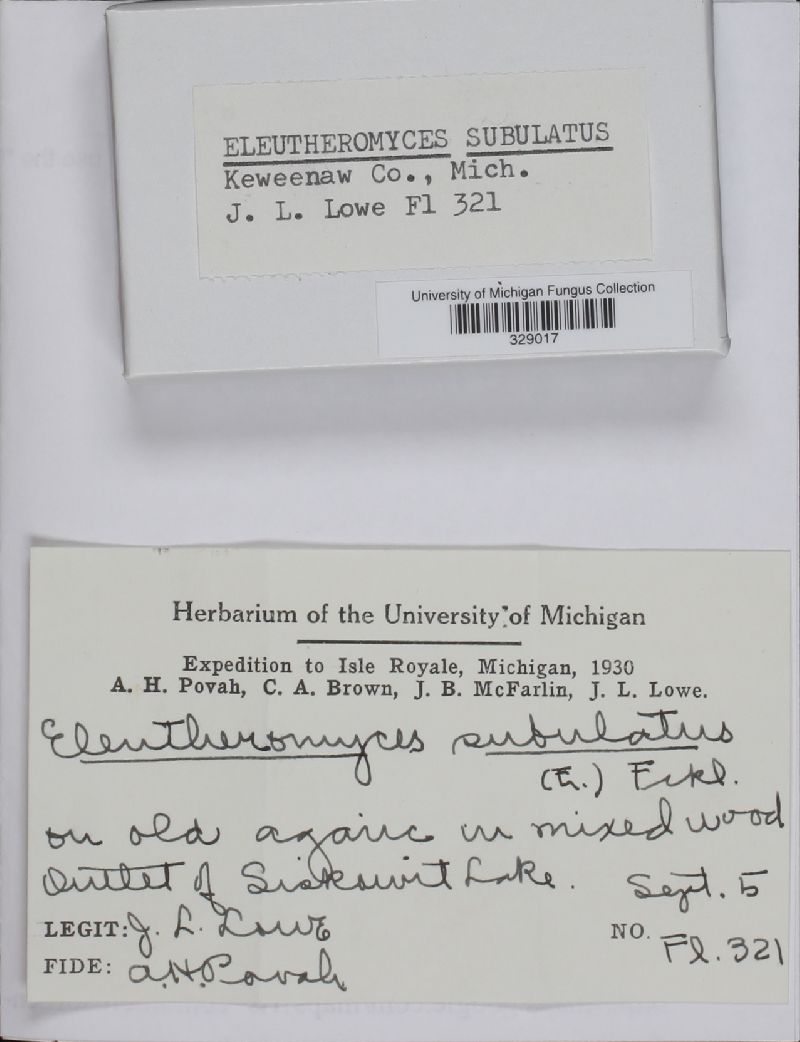 ELEUTHEROMYCES SUBULATUS
Keweenaw Co., Mich.
J. L. Lowe Fl 321
University of Michigan Fungus Collection
329017
Herbarium of the University of Michigan
Expedition to Isle Royale, Michigan, 1930
A. H. Povah, C. A. Brown, J. B. McFarlin, J. L. Lowe.
Eleutheromyces subulatus
Fckl.
on old agaric in mixed wood
Outlet of Siskowit Lake. Sept. 5
LEGIT: J. L. Lowe NO. Fl. 321
FIDE: A.H. Povah